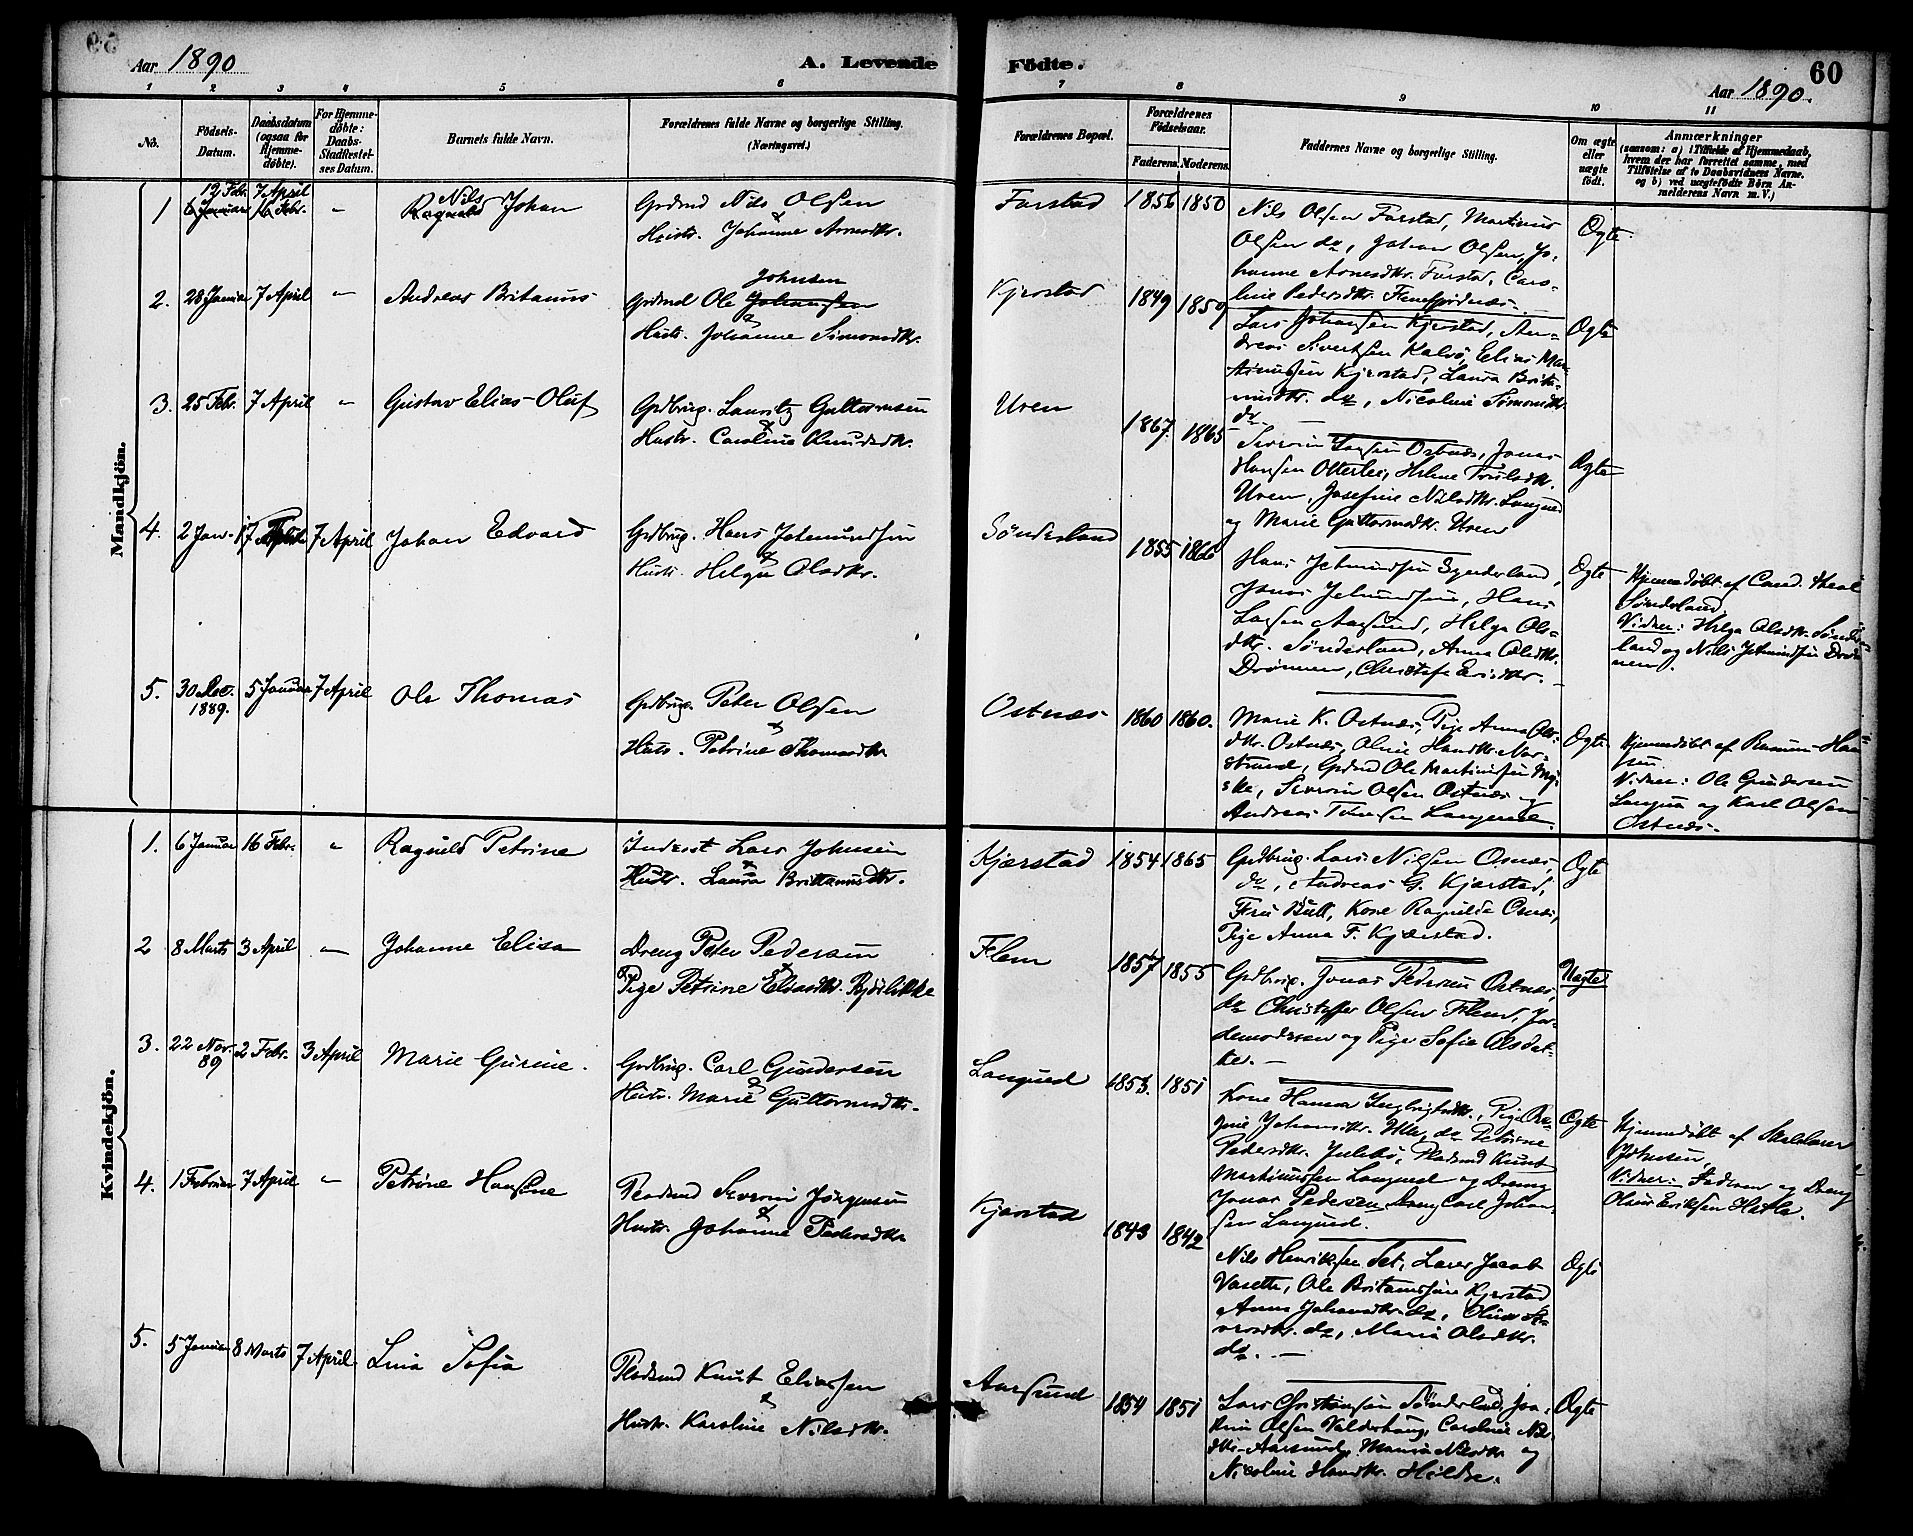 Aar 1890
A. Levende
Födte.
60
Aar 1890.
1 2 3 4 5 6 7 8 9 10 11
No.
Födsels-Datum.
Daabsdatum (ogsaa for Hjemme-døbte).
For Hjemme-døbte: Daabs-Stadfæstel-ses Datum.
Barnets fulde Navn.
Forældrenes fulde Navne og borgerlige Stilling. (Næringsvei.)
Forældrenes Bopæl.
Forældrenes Fødselsaar.
Faderens. Moderens.
Faddernes Navne og borgerlige Stilling.
Om ægte eller uægte født.
Anmærkninger
(saasom: a) i Tilfælde af Hjemmedaab, hvem der har forrettet samme, med Tilføielse af to Daabsvidners Navne. og b) ved uægtefødte Børn An-melderens Navn m. V.)
Mandkjön.
1 12 Febr. 7 April
6 Januar 16 Febr. " Nils
Ragnald Johan
Grdmd Nils Olsen
&
Hustr. Johanne Arnesdtr.
Farstad 1856 1850
Nils Olsen Farstad, Martinus
Olsen do, Johan Olsen, Jo-
hanne Arnesdtr. Farstad, Caro-
line Pedersdtr.
Ægte.
2. 28 Januar 7 April " Andreas Britanus
Johnsen
Grdmd Ole Johansen
&
Hustr. Johanne Simonsdtr.
Kjerstad 1849 1859
Lars Johansen Kjerstad, An-
dreas Sivertsen Kalvø, Elias
Kjerstad, Laura
do, Nicoline Simonsdtr.
do
Ægte
3. 25 Febr. 7 April " Gustav Elias Oluf
Grdbrug. Lauritz Guttormsen
&
Hustr. Caroline Knudsdtr.
Uren 1867. 1865
Severin Larsen Ostnæs, Jonas
Hansen Otterlei, Helene Trulsdtr.
Uren, Josefine Nilsdtr.
og Marie Guttormsdtr. Uren
Ægte
4. 2 Jan. 7 April Johan Edvard
Grdbrug. Hans Jetmundsen
&
Hustr. Helga Olsdtr.
Sønderland 1855 1866
Hans Jetmundsen Synderland,
Jonas Jetmundsen, Hans
Larsen Aarsund, Helga Ols-
dtr. Sønderland, Anna Olsdtr.
Drønnen,
Ægte
Hjemmedøbt af Cand. theol
Sønderland.
Vidner: Helga Olsdtr. Sønder-
land og Nils Jetmundsen Drøn-
nen.
5. 30 Dec. 5 Januar 7 April Ole Thomas
1889.
Grdbrug. Peter Olsen
&
Hustr. Petrine Thomasdtr.
Ostnæs 1860 1860.
Marie K. Ostnæs, Pige Anna Ols-
dtr. Ostnæs, Oline Hansdtr. Nor-
strand, Grdmd Ole Martinussen
Severin Olsen Ostnæs og
Andreas
Ægte
Hjemmedøbt af Rasmus Han-
sen
Vidner: Ole Gundersen
og Karl Olsen
Ostnæs.
Kvindekjön.
1. 6 Januar 16 Febr. " Ragnild Petrine
Inderst Lars Johnsen
&
Hustr. Laura Brittanusdtr.
Kjærstad 1854 1865
Grdbrug. Lars Nilsen Osnæs,
do, Andreas G. Kjærstad,
Fru Bull, Kone Ragnilda Osnæs,
Pige Anna F. Kjærstad.
Ægte
2 8 Marts 3 April " Johanne Elisa
Dreng Peter Pedersen
&
Pige Petrine Eliasdtr.
Flem 1857 1855
Grdbrug. Jonas Pedersen Ostnæs,
do Christoffer Olsen Flem, Jor-
demoderen og Pige Sofie Olsdat-
ter.
Uægte
3. 22 Nov. 2 Febr. 3 April Marie Gurine.
89
Grdbrug. Carl Gundersen
&
Hustr. Marie Guttormsdtr.
1853. 1851
Kone Hanna Ingbrigtsdtr., Pige
Johansdtr. do Petrine
Pedersdtr. Julebø, Pladsmd Knut
Martinussen og Dreng
Jonas Pedersen, Dreng Carl Johan-
sen
Ægte
Hjemmedøbt af Skolelærer
Johnsen
Vidner: Faderen og Dreng
Eriksen Hatle.
4. 1 Februar 7 April " Petrine Hansine
Pladsmd Severin Jørgensen
&
Hustr. Johanne Pedersdtr.
Kjerstad 1843 1842
Nils Henriksen Set, Lærer Jacob
Ole Britanussen Kjerstad
Anna Johansdtr. do,
do, Maria Olsdtr.
do.
Ægte
5. 5 Januar 8 Marts 7 April Lina Sofia
Pladsmd Knut Eliassen
&
Hustr. Karoline Nilsdtr.
Aarsund 1854 1851
Lars Christiansen Sønderland, Joa-
kim Olsen Valderhaug, Caroline Nils-
dtr. Aarsund, Maria Nilsdtr. og
Nicoline Hansdtr. Hildre.
Ægte